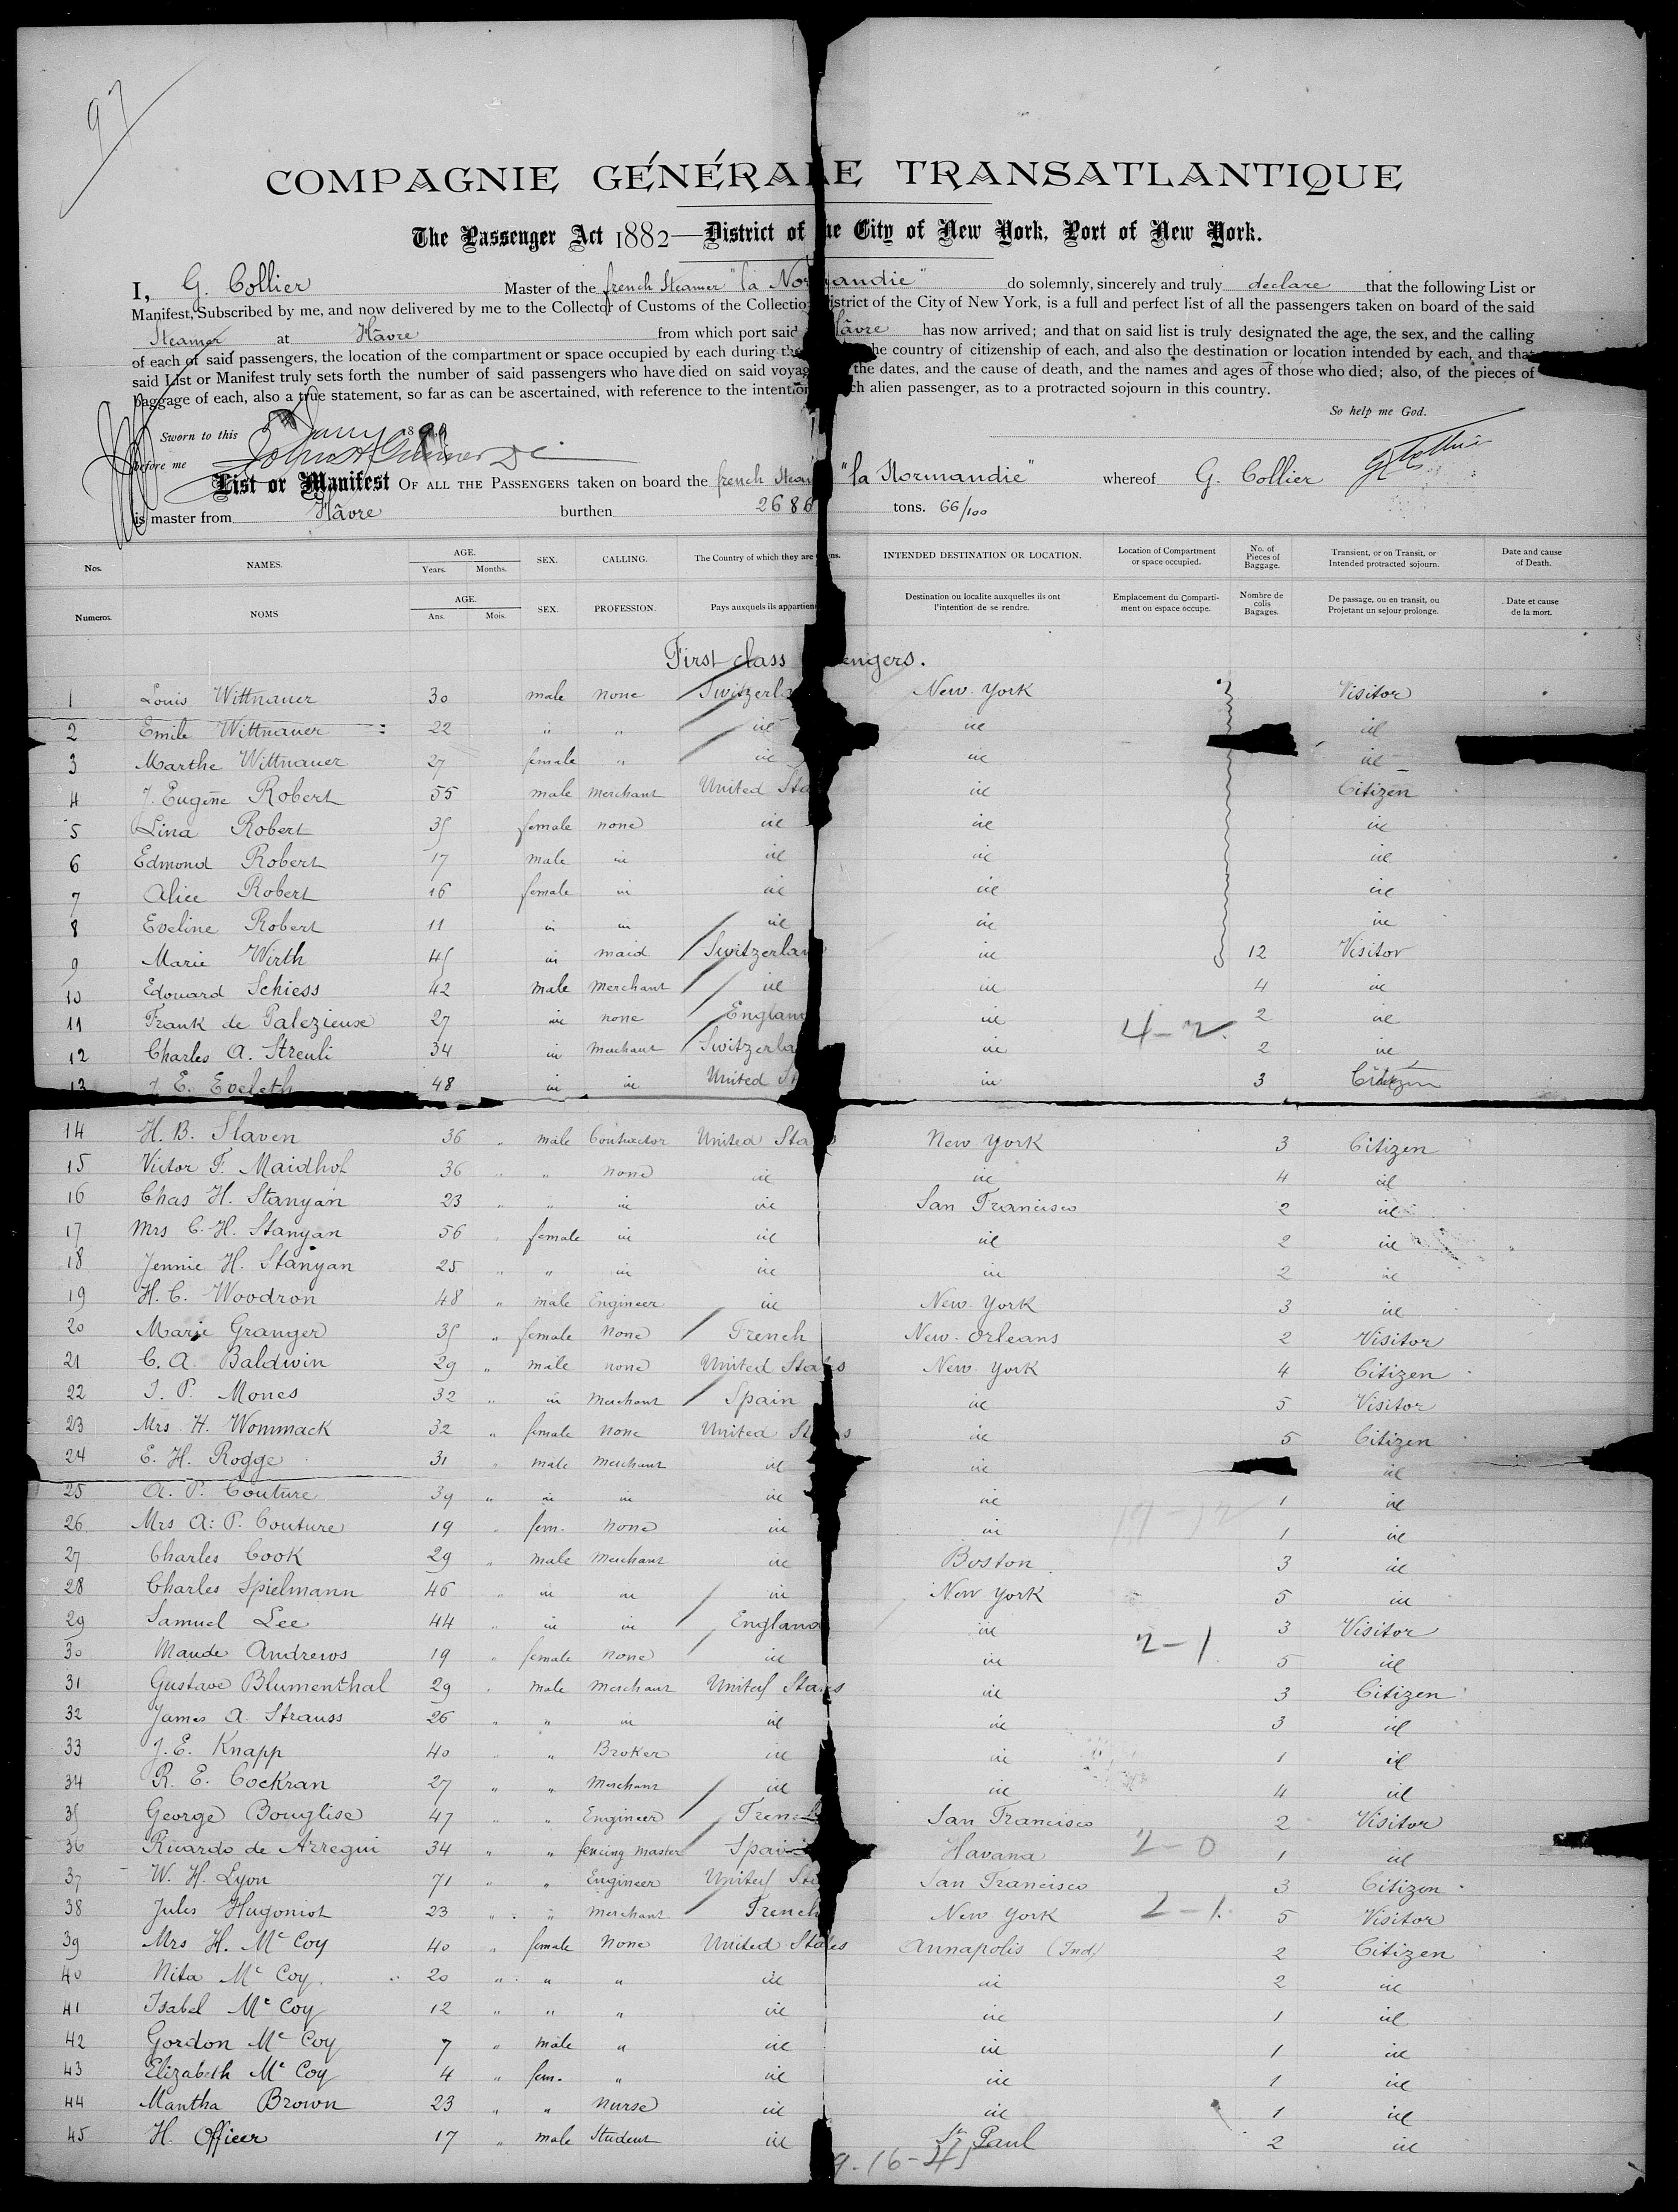 97
COMPAGNIE GÉNÉRALE TRANSATLANTIQUE
The Passenger Act 1882—District of the City of New York, Port of New York.
I, G. Collier Master of the french Steamer "la Normandie" do solemnly, sincerely and truly declare that the following List or
Manifest, Subscribed by me, and now delivered by me to the Collector of Customs of the Collection District of the City of New York, is a full and perfect list of all the passengers taken on board of the said
Steamer at Hâvre from which port said Hâvre has now arrived; and that on said list is truly designated the age, the sex, and the calling
of each of said passengers, the location of the compartment or space occupied by each during the the country of citizenship of each, and also the destination or location intended by each, and that
said List or Manifest truly sets forth the number of said passengers who have died on said voyage the dates, and the cause of death, and the names and ages of those who died; also, of the pieces of
baggage of each, also a true statement, so far as can be ascertained, with reference to the intention each alien passenger, as to a protracted sojourn in this country.
So help me God.
Sworn to this 5 Jany 1890
before me
G. Collier
List or Manifest OF ALL THE PASSENGERS taken on board the french Steam "la Normandie" whereof G. Collier
is master from Hâvre burthen 2686 tons. 66/100
Nos. NAMES. AGE. Years. Months. SEX. CALLING. The Country of which they are INTENDED DESTINATION OR LOCATION. Location of Compartment or space occupied. No. of Pieces of Baggage. Transient, or on Transit, or Intended protracted sojourn. Date and cause of Death.
Numeros. NOMS AGE. Ans. Mois. SEX. PROFESSION. Pays auxquels ils appartien Destination ou localite auxquelles ils ont l'intention de se rendre. Emplacement du Comparti- ment ou espace occupe. Nombre de colis Bagages. De passage, ou en transit, ou Projetant un sejour prolonge. Date et cause de la mort.
First class engers.
1 Louis Wittnauer 30 male none Switzerla New-York Visitor
2 Emile Wittnauer 22 " " id id id
3 Marthe Wittnauer 27 female " id id id
4 J. Eugène Robert 55 male merchant United Sta id Citizen
5 Lina Robert 35 female none id id id
6 Edmond Robert 17 male id id id id
7 Alice Robert 16 female id id id id
8 Eveline Robert 11 id id id id id
9 Marie Wirth 45 id maid Switzerlan id 12 Visitor
10 Edouard Schiess 42 male merchant id id 4 id
11 Frank de Palezieuse 27 id none England id 4-2 2 id
12 Charles A. Streuli 34 id merchant Switzerla id 2 id
13 J. E. Eveleth 48 id id United St id 3 Citizen
14 H. B. Slaven 36 " male Contractor United Sta New York 3 Citizen
15 Victor F. Maidhof 36 " " none id id 4 id
16 Chas H. Stanyan 23 " " id id San Francisco 2 id
17 Mrs C. H. Stanyan 56 " female id id id 2 id
18 Jennie H. Stanyan 25 " " id id id 2 id
19 H. C. Woodron 48 " male Engineer id New-York 3 id
20 Marie Granger 35 " female none French New-Orleans 2 Visitor
21 C. A. Baldwin 29 " male none United States New-York 4 Citizen
22 J. P. Mones 32 " id merchant Spain id 5 Visitor
23 Mrs H. Wommack 32 " female none United States id 5 Citizen
24 E. H. Rogge 31 " male merchant id id id
25 A. P. Couture 39 " id id id id 1 id
26 Mrs A. P. Couture 19 " fem. none id id 1 id
27 Charles Cook 29 " male merchant id Boston 3 id
28 Charles Spielmann 46 " id id id New York 5 id
29 Samuel Lee 44 " id id England id 3 Visitor
30 Maude Andrews 19 " female none id id 2-1 5 id
31 Gustave Blumenthal 29 " male merchant United States id 3 Citizen
32 James A. Strauss 26 " " id id id 3 id
33 J. E. Knapp 40 " " Broker id id 1 id
34 R. E. Cockran 27 " " merchant id id 4 id
35 George Bouglise 47 " " Engineer French San Francisco 2 Visitor
36 Ricardo de Arregui 34 " " fencing master Spain Havana 2-0 1 id
37 W. H. Lyon 71 " " Engineer United Sta San Francisco 3 Citizen
38 Jules Hugoniot 23 " " merchant French New York 2-1. 5 Visitor
39 Mrs H. Mc Coy 40 " female none United States Annapolis (Ind) 2 Citizen
40 Nita Mc Coy 20 " " " id id 2 id
41 Isabel Mc Coy 12 " " " id id 1 id
42 Gordon Mc Coy 7 " male " id id 1 id
43 Elizabeth Mc Coy 4 " fem. " id id 1 id
44 Mantha Brown 23 " " nurse id id 1 id
45 H. Officer 17 " male Student id St Paul 2 id
9-16-45